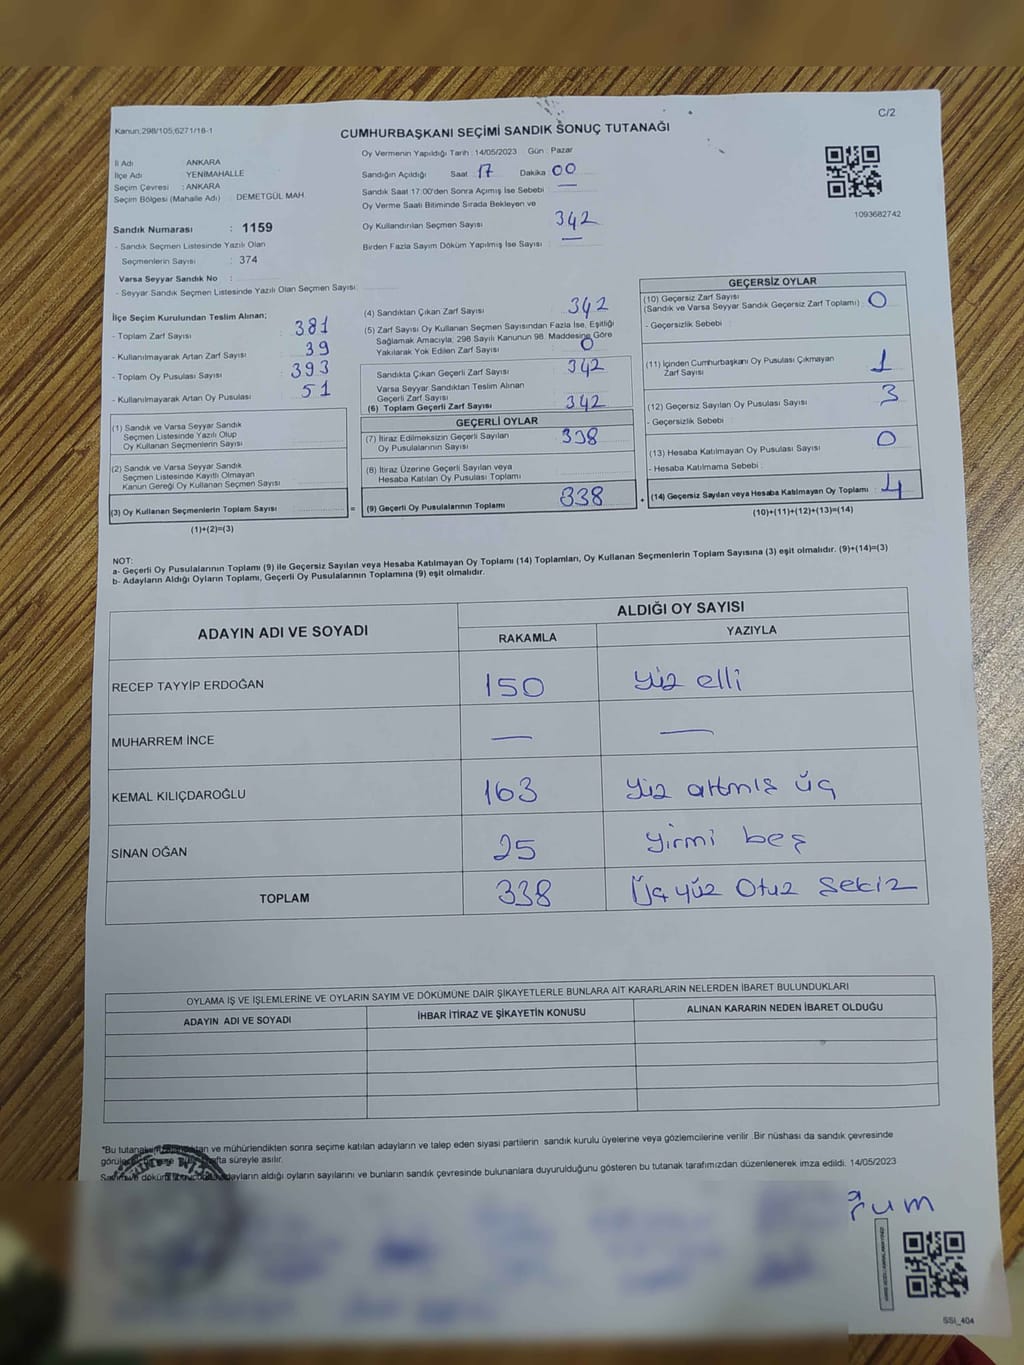 C/2
Kanun;298/105;6271/18-1
CUMHURBAŞKANI SEÇİMİ SANDIK SONUÇ TUTANAĞI
İl Adı ANKARA
İlçe Adı YENİMAHALLE
Seçim Çevresi : ANKARA
Seçim Bölgesi (Mahalle Adı) : DEMETGÜL MAH.
Sandık Numarası : 1159
- Sandık Seçmen Listesinde Yazılı Olan
Seçmenlerin Sayısı : 374
Varsa Seyyar Sandık No :
- Seyyar Sandık Seçmen Listesinde Yazılı Olan Seçmen Sayısı:
Oy Vermenin Yapıldığı Tarih : 14/05/2023 Gün : Pazar
Sandığın Açıldığı Saat 17 Dakika 00
Sandık Saat 17:00'den Sonra Açımış İse Sebebi : —
Oy Verme Saati Bitiminde Sırada Bekleyen ve
Oy Kullandırılan Seçmen Sayısı 342
Birden Fazla Sayım Döküm Yapılmış İse Sayısı : —
1093682742
İlçe Seçim Kurulundan Teslim Alınan;
- Toplam Zarf Sayısı : 381
- Kullanılmayarak Artan Zarf Sayısı : 39
- Toplam Oy Pusulası Sayısı : 393
- Kullanılmayarak Artan Oy Pusulası : 51
(1) Sandık ve Varsa Seyyar Sandık
Seçmen Listesinde Yazılı Olup
Oy Kullanan Seçmenlerin Sayısı
(2) Sandık ve Varsa Seyyar Sandık
Seçmen Listesinde Kayıtlı Olmayan
Kanun Gereği Oy Kullanan Seçmen Sayısı
(3) Oy Kullanan Seçmenlerin Toplam Sayısı =
(1)+(2)=(3)
(4) Sandıktan Çıkan Zarf Sayısı : 342
(5) Zarf Sayısı Oy Kullanan Seçmen Sayısından Fazla İse, Eşitliği
Sağlamak Amacıyla; 298 Sayılı Kanunun 98. Maddesine Göre
Yakılarak Yok Edilen Zarf Sayısı : 0
Sandıkta Çıkan Geçerli Zarf Sayısı : 342
Varsa Seyyar Sandıktan Teslim Alınan
Geçerli Zarf Sayısı
(6) Toplam Geçerli Zarf Sayısı : 342
GEÇERLİ OYLAR
(7) İtiraz Edilmeksizin Geçerli Sayılan
Oy Pusulalarının Sayısı : 338
(8) İtiraz Üzerine Geçerli Sayılan veya
Hesaba Katılan Oy Pusulası Toplamı :
(9) Geçerli Oy Pusulalarının Toplamı : 338 +
GEÇERSİZ OYLAR
(10) Geçersiz Zarf Sayısı
(Sandık ve Varsa Seyyar Sandık Geçersiz Zarf Toplamı) : 0
- Geçersizlik Sebebi :
(11) İçinden Cumhurbaşkanı Oy Pusulası Çıkmayan
Zarf Sayısı 1
(12) Geçersiz Sayılan Oy Pusulası Sayısı : 3
- Geçersizlik Sebebi :
(13) Hesaba Katılmayan Oy Pusulası Sayısı : 0
- Hesaba Katılmama Sebebi :
(14) Geçersiz Sayılan veya Hesaba Katılmayan Oy Toplamı : 4
(10)+(11)+(12)+(13)=(14)
NOT:
a- Geçerli Oy Pusulalarının Toplamı (9) ile Geçersiz Sayılan veya Hesaba Katılmayan Oy Toplamı (14) Toplamları, Oy Kullanan Seçmenlerin Toplam Sayısına (3) eşit olmalıdır. (9)+(14)=(3)
b- Adayların Aldığı Oyların Toplamı, Geçerli Oy Pusulalarının Toplamına (9) eşit olmalıdır.
ADAYIN ADI VE SOYADI ALDIĞI OY SAYISI
RAKAMLA YAZIYLA
RECEP TAYYİP ERDOĞAN 150 yüz elli
MUHARREM İNCE — —
KEMAL KILIÇDAROĞLU 163 yüz altmış üç
SİNAN OĞAN 25 yirmi beş
TOPLAM 338 Üç yüz Otuz Sekiz
OYLAMA İŞ VE İŞLEMLERİNE VE OYLARIN SAYIM VE DÖKÜMÜNE DAİR ŞİKAYETLERLE BUNLARA AİT KARARLARIN NELERDEN İBARET BULUNDUKLARI
ADAYIN ADI VE SOYADI İHBAR İTİRAZ VE ŞİKAYETİN KONUSU ALINAN KARARIN NEDEN İBARET OLDUĞU
*Bu tutanak ve mühürlendikten sonra seçime katılan adayların ve talep eden siyasi partilerin sandık kurulu üyelerine veya gözlemcilerine verilir .Bir nüshası da sandık çevresinde
süreyle asılır.
adayların aldığı oyların sayılarını ve bunların sandık çevresinde bulunanlara duyurulduğunu gösteren bu tutanak tarafımızdan düzenlenerek imza edildi. 14/05/2023
SSI_404